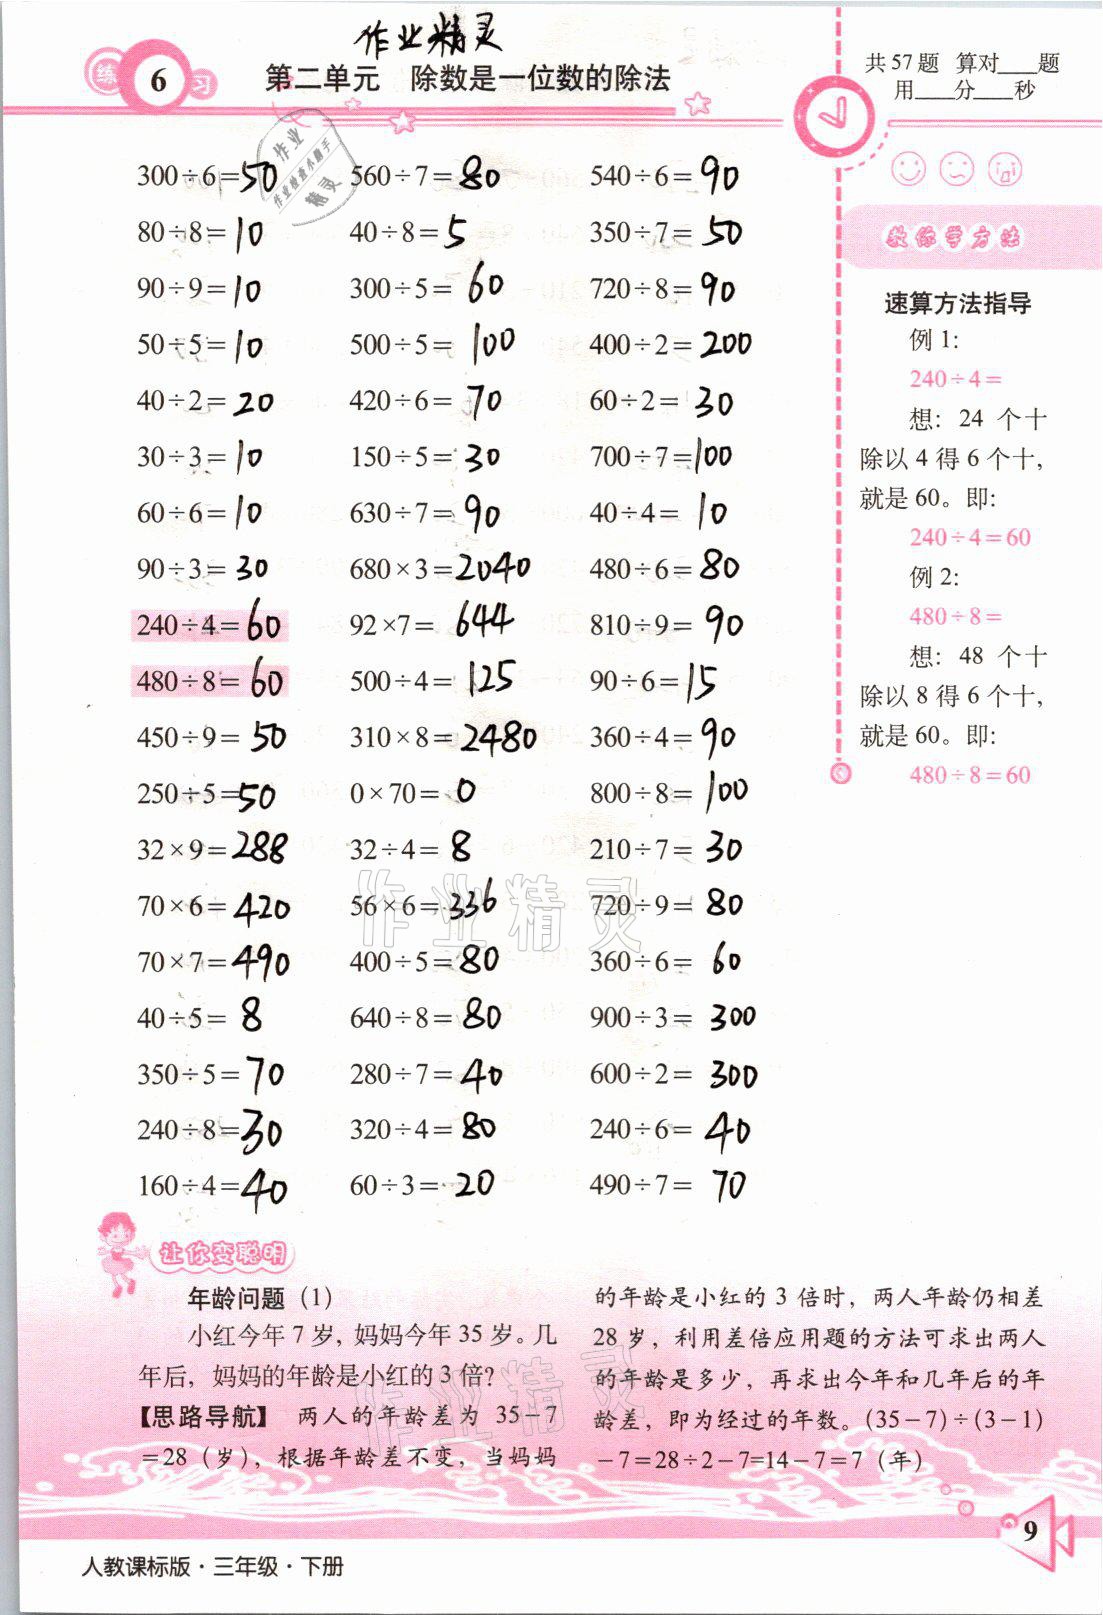 作业精灵
练 6 习
第二单元 除数是一位数的除法
共57题 算对____题
用____分____秒
作业
作业检查小助手
精灵
300÷6=50 560÷7=80 540÷6=90
80÷8=10 40÷8=5 350÷7=50
90÷9=10 300÷5=60 720÷8=90
50÷5=10 500÷5=100 400÷2=200
40÷2=20 420÷6=70 60÷2=30
30÷3=10 150÷5=30 700÷7=100
60÷6=10 630÷7=90 40÷4=10
90÷3=30 680×3=2040 480÷6=80
240÷4=60 92×7=644 810÷9=90
480÷8=60 500÷4=125 90÷6=15
450÷9=50 310×8=2480 360÷4=90
250÷5=50 0×70=0 800÷8=100
32×9=288 32÷4=8 210÷7=30
70×6=420 56×6=336 720÷9=80
70×7=490 400÷5=80 360÷6=60
40÷5=8 640÷8=80 900÷3=300
350÷5=70 280÷7=40 600÷2=300
240÷8=30 320÷4=80 240÷6=40
160÷4=40 60÷3=20 490÷7=70
教你学方法
速算方法指导
例1:
240÷4=
想: 24 个十
除以 4 得 6 个十,
就是 60。即:
240÷4=60
例2:
480÷8=
想: 48 个十
除以 8 得 6 个十,
就是 60。即:
480÷8=60
作业精灵
让你变聪明
年龄问题 (1)
小红今年 7 岁, 妈妈今年 35 岁。几
年后, 妈妈的年龄是小红的 3 倍?
【思路导航】 两人的年龄差为 35-7
=28 (岁), 根据年龄差不变, 当妈妈
的年龄是小红的 3 倍时, 两人年龄仍相差
28 岁, 利用差倍应用题的方法可求出两人
的年龄是多少, 再求出今年和几年后的年
龄差, 即为经过的年数。(35-7)÷(3-1)
-7=28÷2-7=14-7=7 (年)
作业精灵
9
人教课标版·三年级·下册